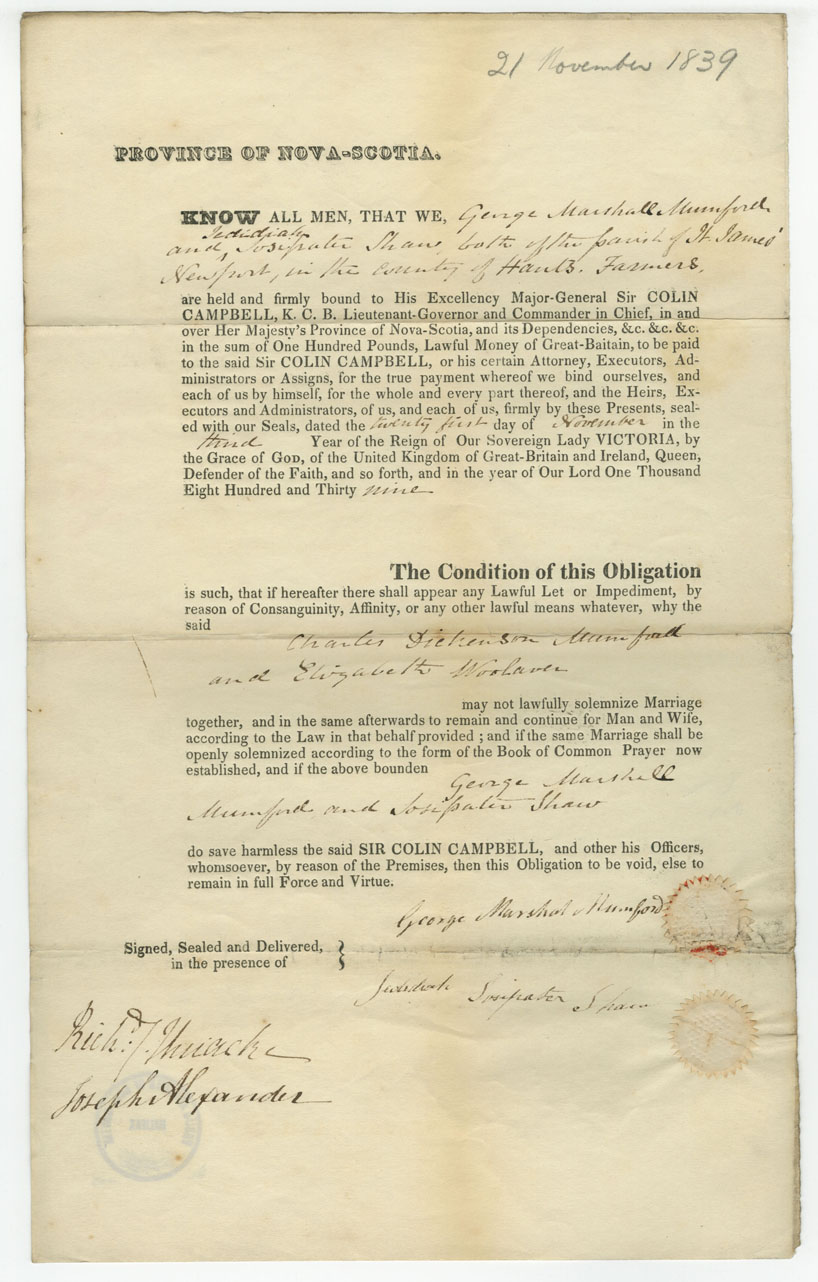 21 November 1839
PROVINCE OF NOVA-SCOTIA.
KNOW ALL MEN, THAT WE, George Marshall Mumford
Jedidiah
and, Sosipater Shaw, both of the parish of St. James'
Newport, in the county of Hants. Farmers,
are held and firmly bound to His Excellency Major-General Sir COLIN
CAMPBELL, K. C. B. Lieutenant-Governor and Commander in Chief, in and
over Her Majesty's Province of Nova-Scotia, and its Dependencies, &c. &c. &c.
in the sum of One Hundred Pounds, Lawful Money of Great-Baitain, to be paid
to the said Sir COLIN CAMPBELL, or his certain Attorney, Executors, Ad-
ministrators or Assigns, for the true payment whereof we bind ourselves, and
each of us by himself, for the whole and every part thereof, and the Heirs, Ex-
ecutors and Administrators, of us, and each of us, firmly by these Presents, seal-
ed with our Seals, dated the twenty first day of November in the
third Year of the Reign of Our Sovereign Lady VICTORIA, by
the Grace of GOD, of the United Kingdom of Great-Britain and Ireland, Queen,
Defender of the Faith, and so forth, and in the year of Our Lord One Thousand
Eight Hundred and Thirty nine
The Condition of this Obligation
is such, that if hereafter there shall appear any Lawful Let or Impediment, by
reason of Consanguinity, Affinity, or any other lawful means whatever, why the
said
Charles Dickenson Mumford
and Elizabeth Woolaver
may not lawfully solemnize Marriage
together, and in the same afterwards to remain and continue for Man and Wife,
according to the Law in that behalf provided ; and if the same Marriage shall be
openly solemnized according to the form of the Book of Common Prayer now
established, and if the above bounden
George Marshall
Mumford and Sosipater Shaw
do save harmless the said SIR COLIN CAMPBELL, and other his Officers,
whomsoever, by reason of the Premises, then this Obligation to be void, else to
remain in full Force and Virtue.
George Marshal Mumford
Signed, Sealed and Delivered, }
in the presence of
Sosipater Shaw
Richd. J. Uniacke
Joseph Alexander